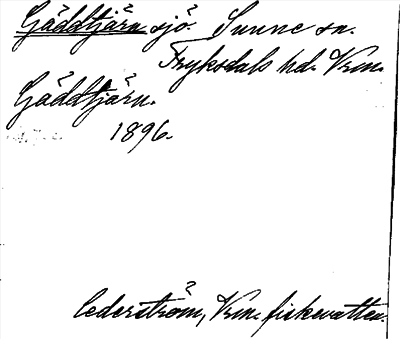 Gäddtjärn sjö. Sunne sn.
Fryksdals hd. Vrm.
Gäddtjärn.
1896.
Cederström, Vrm. fiskevatten.